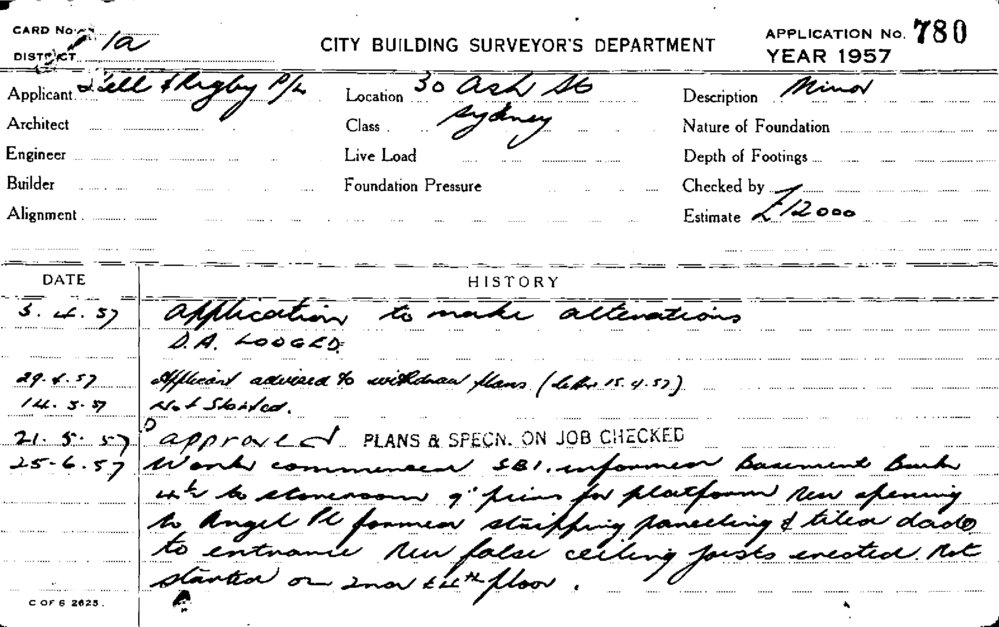 CARD No.
DISTRICT 1a
CITY BUILDING SURVEYOR'S DEPARTMENT
APPLICATION No. 780
YEAR 1957
Applicant Kell & Rigby P/L
Location 30 Ash St
Sydney
Description Minor
Architect
Class
Nature of Foundation
Engineer
Live Load
Depth of Footings
Builder
Foundation Pressure
Checked by
Alignment
Estimate £12000
DATE
HISTORY
3.4.57 Application to make alterations
D.A. LODGED.
29.4.57 Applicant advised to withdraw plans (letter 15.4.57)
14.5.57 Not Started.
21.5.57 approved PLANS & SPECN. ON JOB CHECKED
25-6.57 Work commenced SBI. informed Basement
to storeroom 9" piers for platform New opening
to Angel Pl formed stripping panelling & tiled dado
to entrance New false ceiling joists erected. Not
started on 2nd & 4th floor.
C OF S 2625.